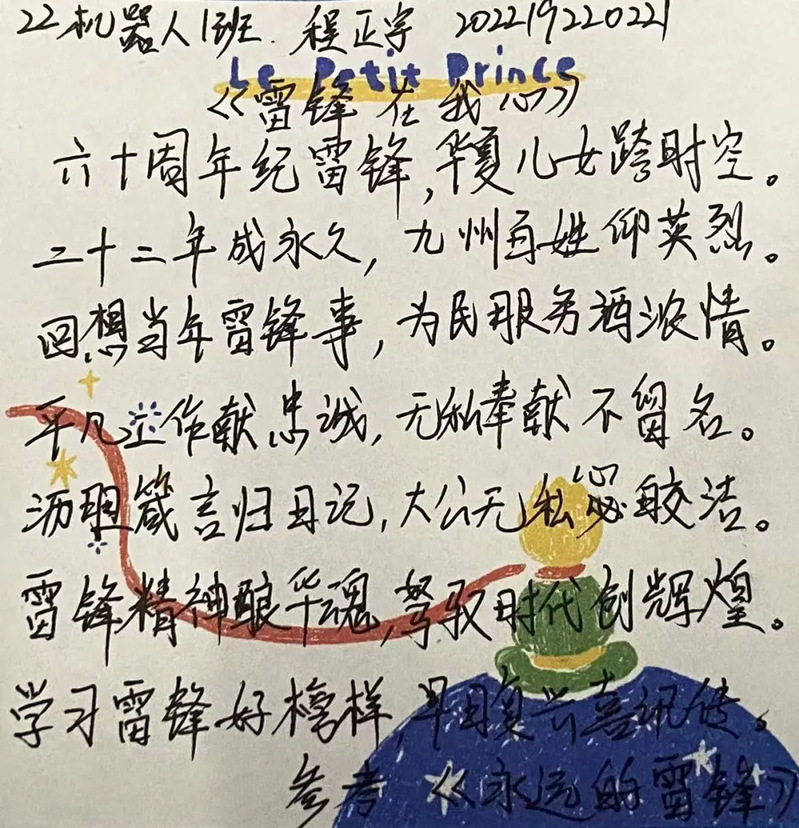 22机器人1班 程正宇 202219220221
Le Petit Prince
《雷锋在我心》
六十周年纪雷锋,华夏儿女跨时空。
二十二年成永久,九州百姓仰英烈。
回想当年雷锋事,为民服务洒浓情。
平凡工作献忠诚,无私奉献不留名。
沥胆箴言归日记,大公无私心皎洁。
雷锋精神酿华魂,驾驭时代创辉煌。
学习雷锋好榜样,早日复兴喜讯传。
参考《永远的雷锋》